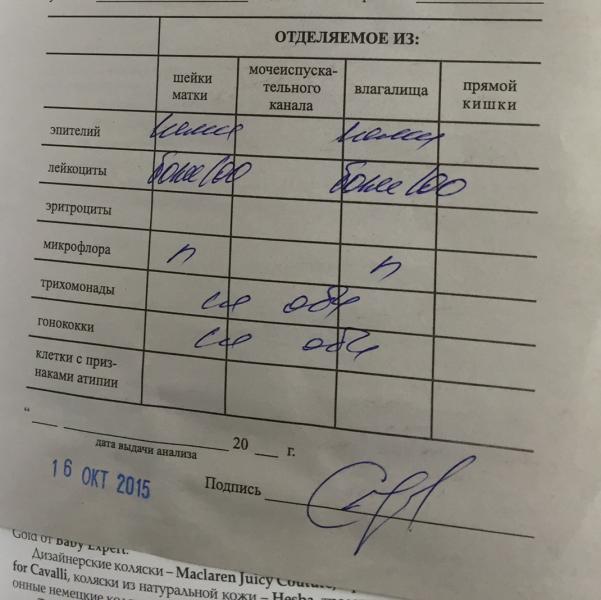 ОТДЕЛЯЕМОЕ ИЗ:
шейки матки мочеиспускательного канала влагалища прямой кишки
эпителий
лейкоциты более 100 более 100
эритроциты
микрофлора п п
трихомонады
гонококки
клетки с приз-
наками атипии
“ 20 г.
дата выдачи анализа
16 ОКТ 2015
Подпись
Gold от Baby Expert.
Дизайнерские коляски – Maclaren Juicy Couture,
for Cavalli, коляски из натуральной кожи – Hesba,
онные немецкие